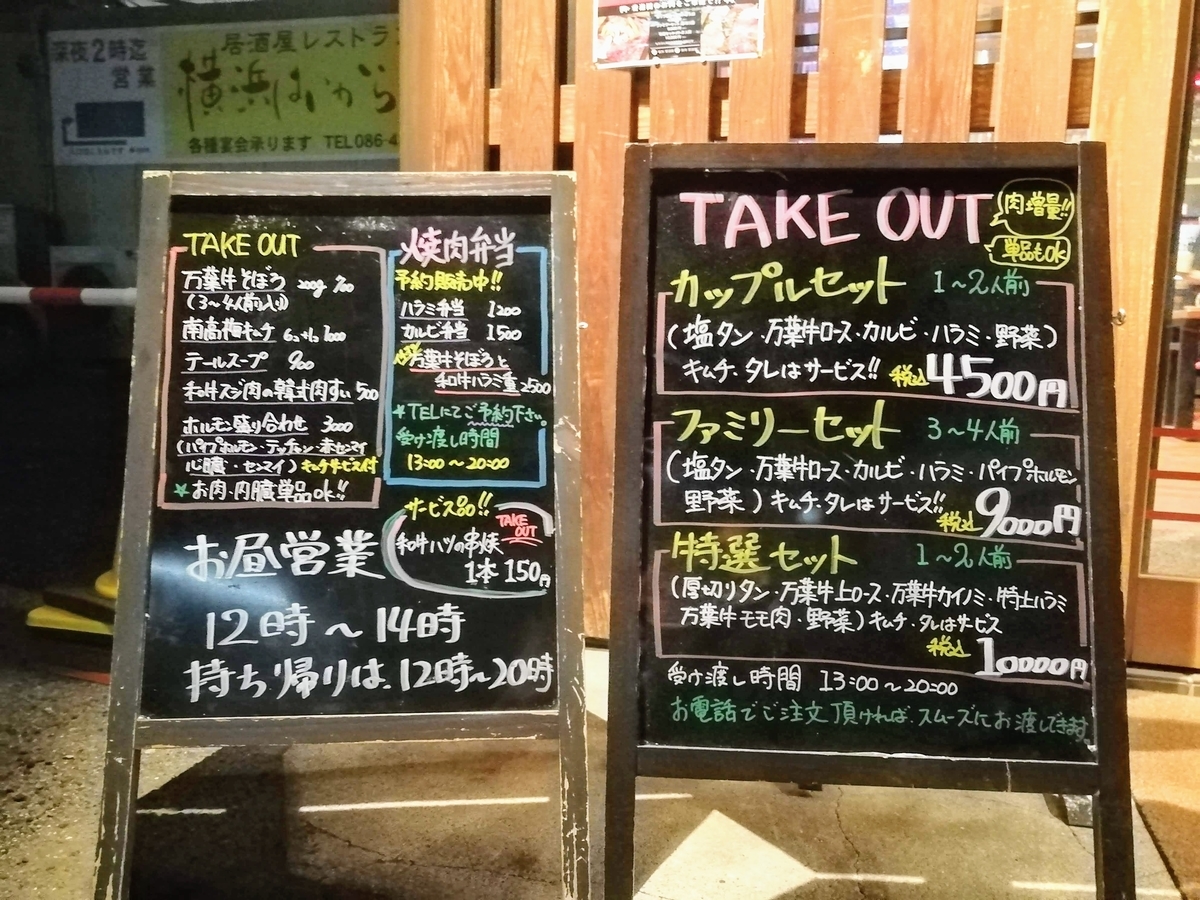 深夜2時迄
営業
居酒屋レストラ
横浜はいから
各種宴会承ります TEL086-4
TAKE OUT
万葉牛そぼろ 200g 900
(3～4人前入り)
南高梅キムチ 1000
テールスープ 900
和牛スジ肉の韓式肉すい 500
ホルモン盛り合わせ 3000
(パイプホルモン・テッチャン・赤センマイ
心臓・センマイ) キムチサービス付
★お肉・内臓単品ok!!
焼肉弁当
予約販売中!!
ハラミ弁当 1200
カルビ弁当 1500
万葉牛そぼろと
和牛ハラミ重 2500
★TELにてご予約下さい。
受け渡し時間
13:00～20:00
サービス品!!
TAKE OUT
和牛ハツの串焼
1本 150円
お昼営業
12時～14時
持ち帰りは、12時～20時
TAKE OUT
肉増量!!
単品もok
カップルセット 1～2人前
(塩タン・万葉牛ロース・カルビ・ハラミ・野菜)
キムチ、タレはサービス!! 税込 4500円
ファミリーセット 3～4人前
(塩タン・万葉牛ロース・カルビ・ハラミ・パイプホルモン
野菜) キムチ、タレはサービス!!
税込 9000円
特選セット 1～2人前
(厚切りタン・万葉牛上ロース・万葉牛カイノミ・特上ハラミ
万葉牛モモ肉・野菜) キムチ、タレはサービス
税込 10000円
受け渡し時間 13:00～20:00
お電話でご注文頂ければ、スムーズにお渡しできます。